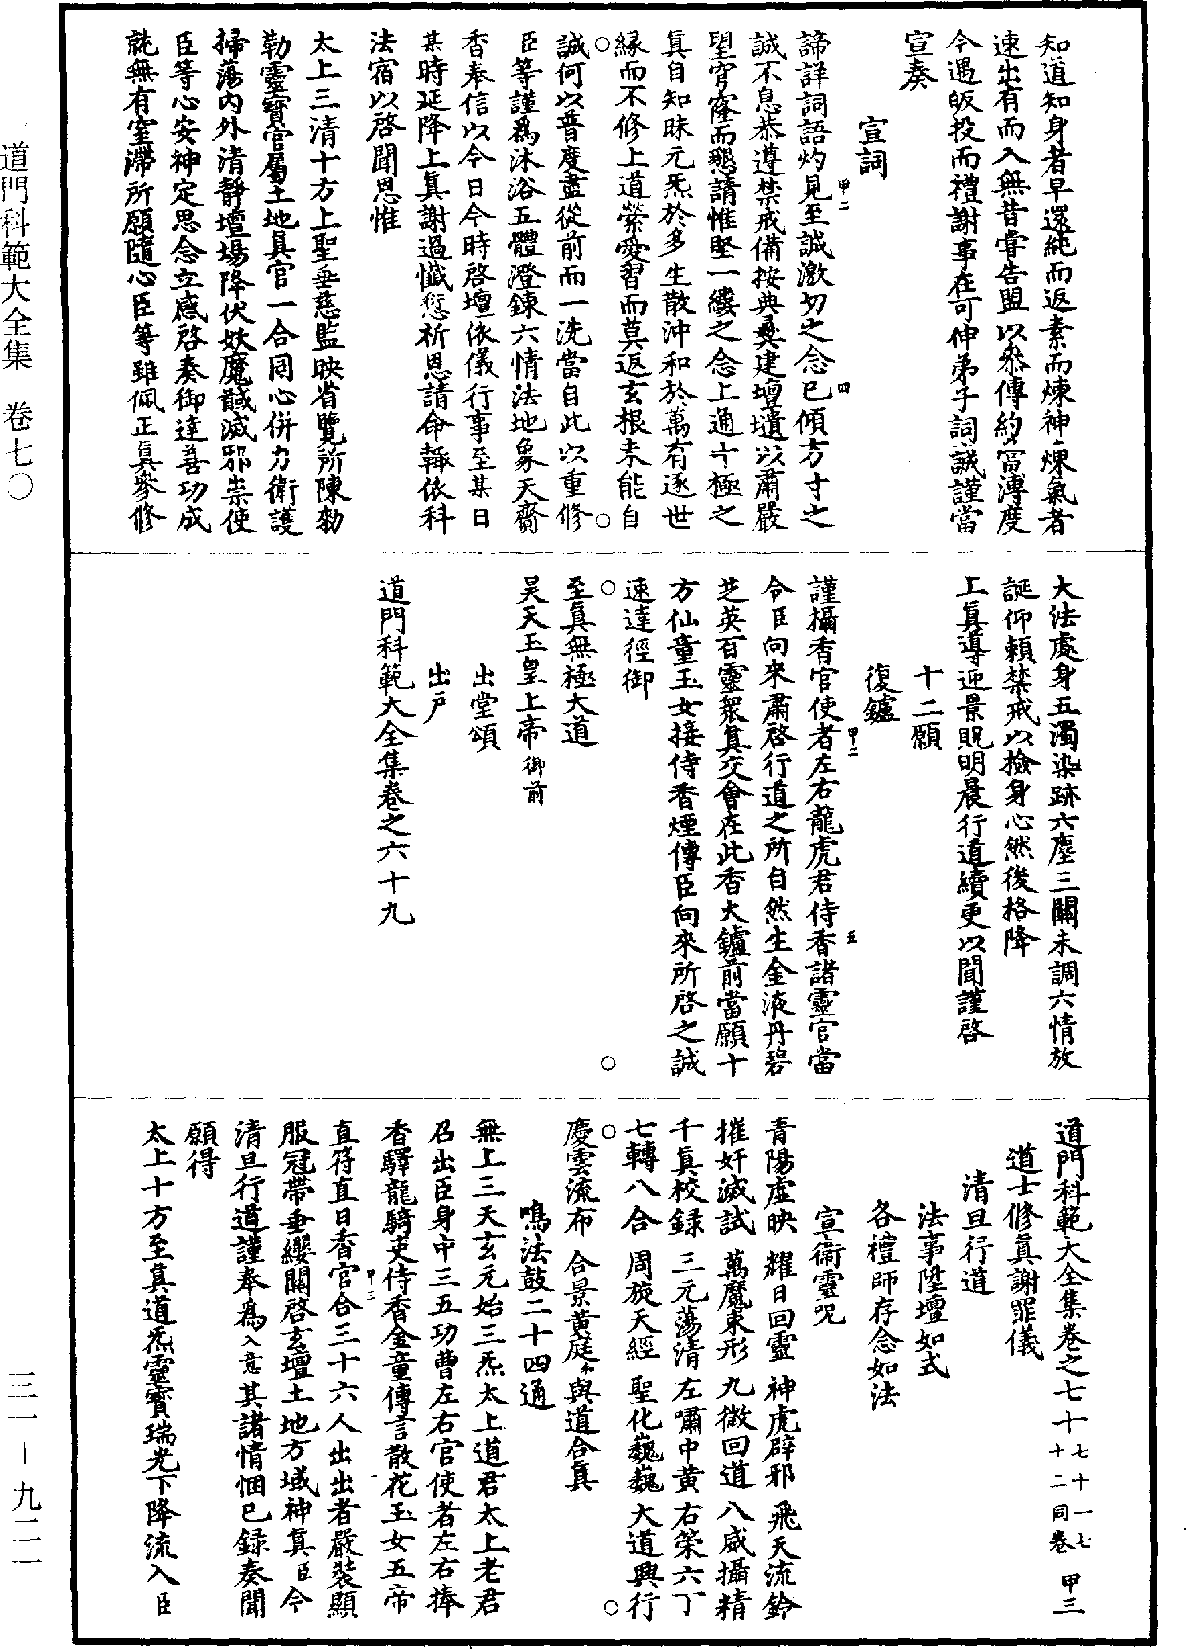 知道知身者早還純而返素而煉神煉氣者
速出有而入無昔嘗告盟以叅傳約當溥度
今遇皈投而禮謝事在可伸弟子詞誠謹當
宣奏
宣詞
諦詳詞語灼見至誠激切之念已傾方寸之
誠不息恭遵禁戒備按典彝建壇墠以肅嚴
望穹窿而懇請惟堅一縷之念上通十極之
真自知昧元炁於多生散沖和於萬有逐世
緣而不修上道縈愛習而莫返玄根未能自
誠何以普度盡從前而一洗當自此以重修
臣等謹爲沐浴五體澄鍊六情法地象天齋
香奉信以今日今時啓壇依儀行事至某日
某時延降上真謝過懺愆祈恩請命輙依科
法宿以啓聞恩惟
太上三清十方上聖垂慈監映省覽所陳勑
勒靈寶官屬土地真官一合同心併力衛護
掃蕩内外清靜壇場降伏妖魔馘滅邪祟使
臣等心安神定思念立感啓奏御達善功成
就無有窒滯所願隨心臣等雖佩正真叅修
甲二
四
大法處身五濁染跡六塵三關未調六情放
誕仰頼禁戒以撿身心然後格降
上真導迎景貺明晨行道續更以聞謹啓
十二願
復鑪
謹攝香官使者左右龍虎君侍香諸靈官當
令臣向來肅啓行道之所自然生金液丹碧
芝英百靈衆真交會在此香火鑪前當願十
方仙童玉女接侍香煙傳臣向來所啓之誠
速達徑御
至真無極大道
昊天玉皇上帝御前
出堂頌
出戶
道門科範大全集卷之六十九
甲二
五
道門科範大全集卷之七十 七十一七十二同卷 甲三
道士修真謝罪儀
清旦行道
法事陞壇如式
各禮師存念如法
宣衛靈呪
青陽虛映 耀日回靈 神虎辟邪 飛天流鈴
摧奸滅試 萬魔束形 九微回道 八威攝精
千真校録 三元蕩清 左嘯中黄 右策六丁
七轉八合 周旋天經 聖化巍巍 大道興行
慶雲流布 合景黄庭 與道合真
鳴法鼓二十四通
無上三天玄元始三炁太上道君太上老君
召出臣身中三五功曹左右官使者左右捧
香驛龍騎吏侍香金童傳言散花玉女五帝
直符直日香官合三十六人出出者嚴裝顯
服冠帶垂纓關啓玄壇土地方域神真臣今
清旦行道謹奉爲入意其諸情悃已録奏聞
願得
太上十方至真道炁靈寶瑞光下降流入臣
甲三
道門科範大全集 卷七〇
三一－九二一